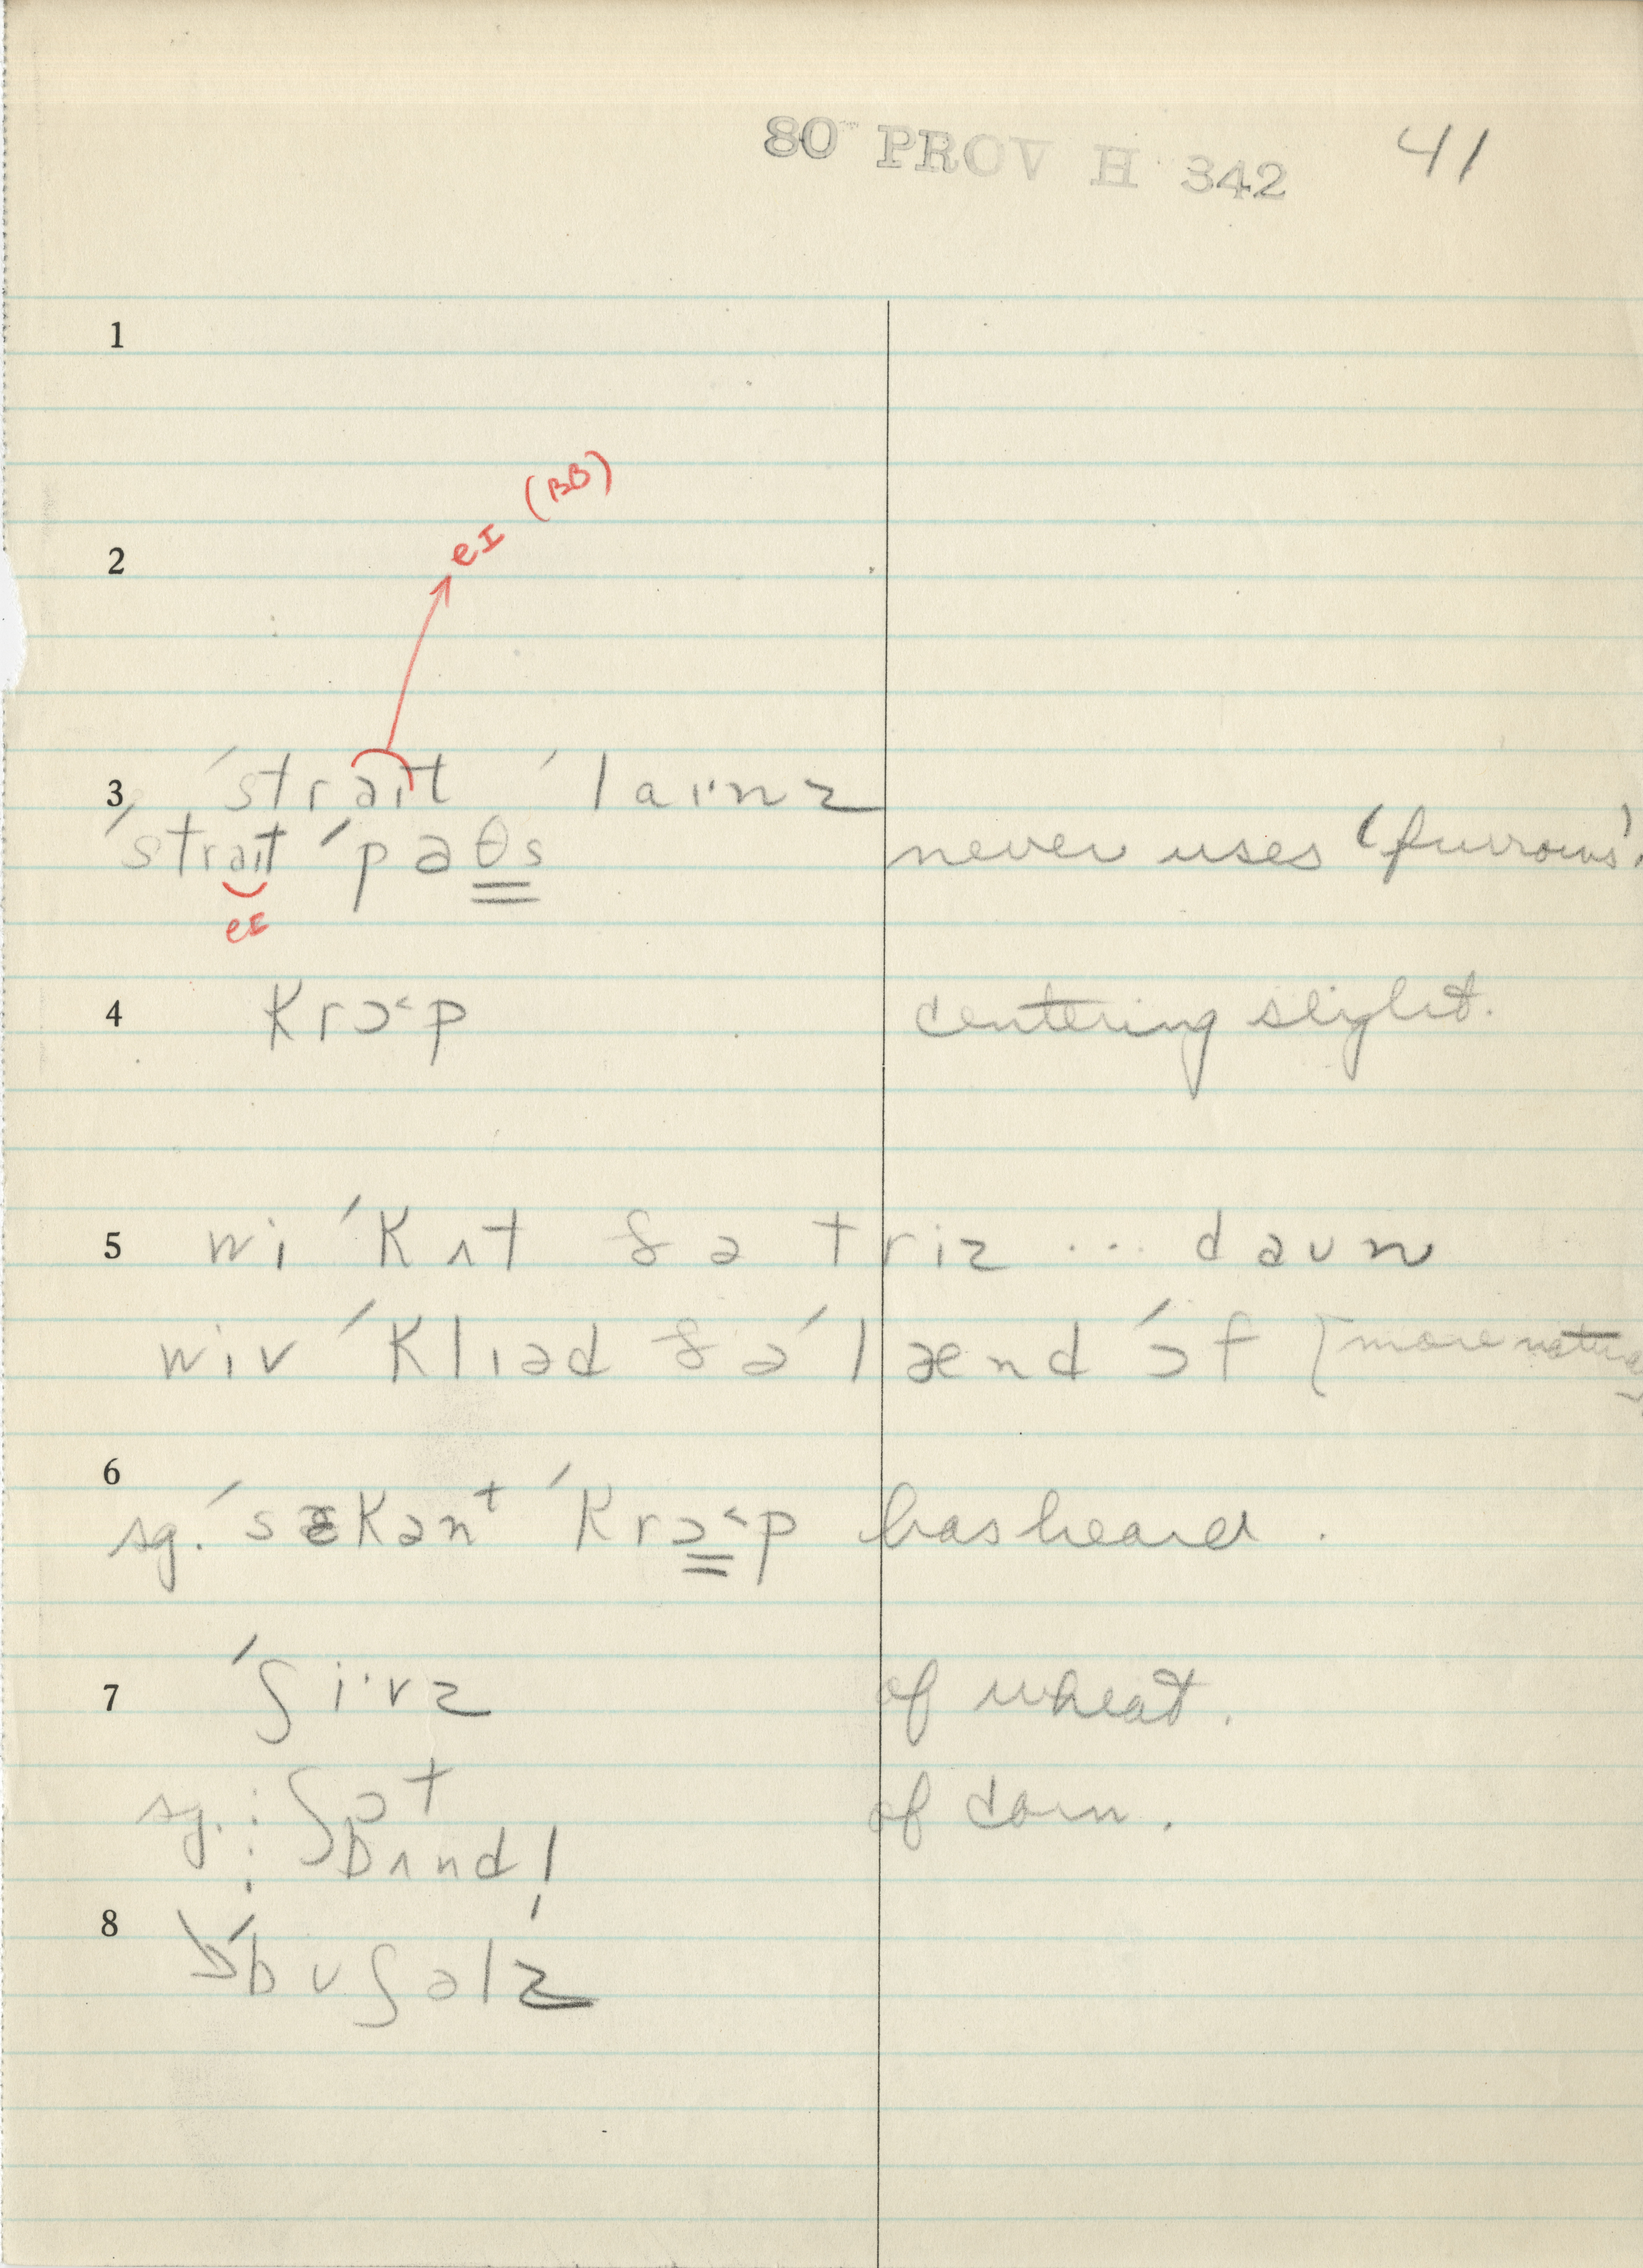 80 PROV H 342 41
1
eɪ (BB)
2
3 ˈstraɪt ˈlaɪˑnz
ˈstraɪt ˈpaθs never uses 'furrows'.
eɪ
4 krɔ˂p centering slight.
5 wi ˈkʌt ðə triz ... daun
wiv ˈklɪəd ðə ˈlænd ˈɔf [more natural
6 sg. ˈsɛkənt ˈkrɔ˂p has heard.
7 ˈʃiˑvz of wheat.
sg. : ʃɔt of corn.
bʌnd!
8 ˈbuʃəlz